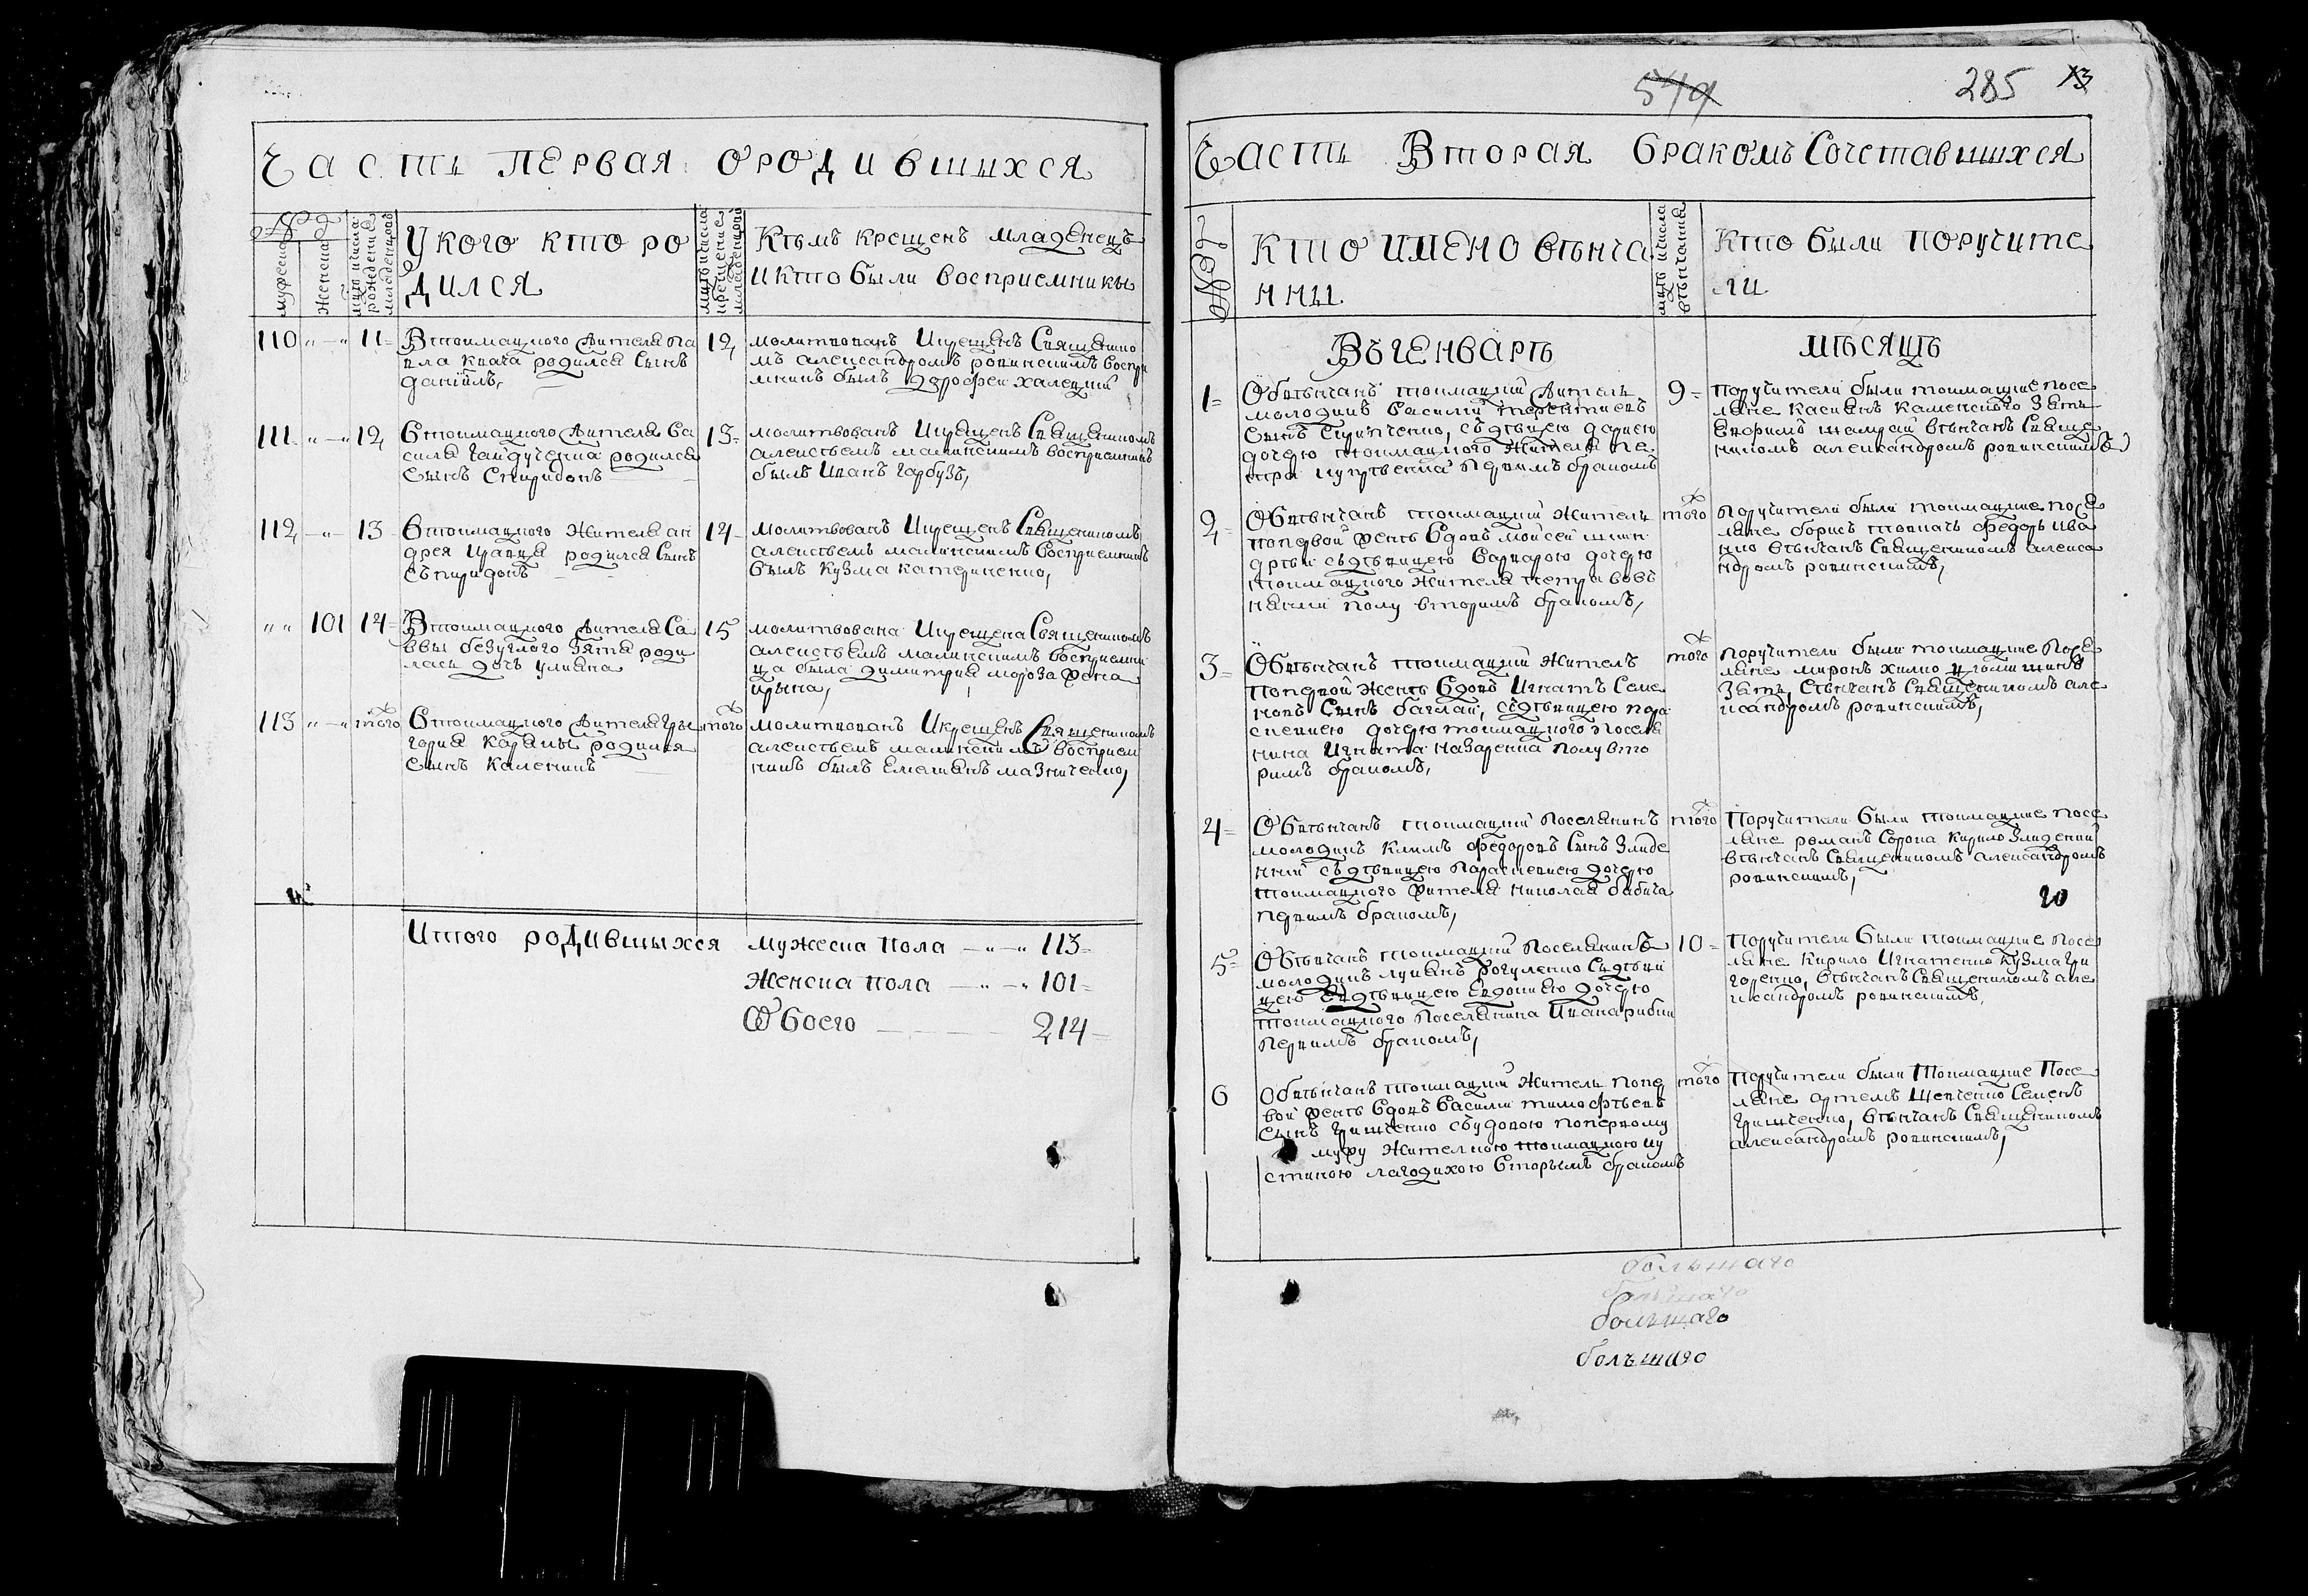 Часть первая ородившыхся
№
мужеска
женска
У кого кто ро
дился
Кѣмъ крещенъ младенецъ
и кто были восприемники
110 „—„ 11
Втокмацкого жителя па
вла квача родился сынъ
даніилъ,
12
молитвованъ Икрещенъ Священико
мъ александромъ ровинскимъ воспри
мникъ былъ дорофеи халецкий
111 „—„ 12
Втокмацкого жителя ва
силя гайдученка родился
сынъ Спиридонъ
13
молитвованъ Икрещенъ Священикомъ
алексѣемъ малинскимъ восприемникъ
былъ Иванъ гарбузъ,
112 „—„ 13
Втокмацкого жителя ан
дрея кравца родился сынъ
Съпиридонъ
14
молитвованъ Икрещенъ Священикомъ
алексѣемъ малинскимъ восприемникъ
былъ кузма катериненко,
„ „ 101 14
Втокмацкого жителя Са
ввы безуглого зятя роди
лась дочь улияна
15
молитвована Икрещена Священикомъ
алексѣемъ малинскимъ восприемни
ца была димитрия мороза жена
ирына,
113 „—„ того
Втокмацкого жителя гры
гория родился
сынъ каленикъ
того
молитвованъ Икрещенъ Священикомъ
алексѣемъ малинскимъ восприем
никъ былъ емелянъ мазниченко,
Итого родившыхся мужеска пола —„—„ 113
Женска пола —„—„ 101
Обоего 214
549
285
13
Часть Вторая бракомъ Сочетавшихся
№
Кто имено вѣнча
нны
Кто были поручите
ли
Въ генварѣ мѣсяцѣ
1
Обвѣнчанъ токмацкий житель
молодикъ василий терентиевъ
сынъ сѣдѣвицею дариею
дочерю токмацкого жителя пе
тра первимъ бракомъ
9
Поручители были токмацкие посе
ляне касиянъ каменского зять
вѣнчанъ Свяще
никомъ александромъ ровинскимъ
2
Обвѣнчанъ токмацкий житель
попервой женѣ вдовъ мойсей
сѣдѣвицею варварою дочерю
токмацкого жителя петра
полу вторимъ бракомъ,
того
Поручители были токмацкие посе
ляне борисъ федоръ ива
вѣнчанъ Священикомъ алекса
ндромъ ровинскимъ,
3
Обвѣнчанъ токмацкий житель
попервой женѣ вдовъ Игнатъ Семе
новъ сынъ баглай, сѣдѣвицею пара
скевиею дочерю токмацкого поселя
нина Игната назаренка полу вто
римъ бракомъ,
того
Поручители были токмацкие посе
ляне миронъ хилко
зять, вѣнчанъ Священикомъ але
ксандромъ ровинскимъ,
4
Обвѣнчанъ токмацкий поселянинъ
молодикъ климъ федоровъ сынъ злиде
нний сѣдѣвицею параскевиею дочерю
токмацкого жителя николая бабича
первимъ бракомъ,
того
Поручители были токмацкие посе
ляне романъ Сорока кирило злиденний
вѣнчанъ Священикомъ александромъ
ровинскимъ,
20
5
Обвѣнчанъ токмацкий поселянинъ
молодикъ лукянъ рогуленко сѣдѣви
цею сѣдѣвицею евдокиею дочерю
токмацкого поселянина Ивана рибки
первимъ бракомъ,
10
Поручители были токмацкие посе
ляне кирило Игнатенко кузма гри
горенко, вѣнчанъ Священикомъ але
ксандромъ ровинскимъ,
6
Обвѣнчанъ токмацкий житель попер
вой женѣ вдовъ василий тимофѣевъ
сынъ гришченко сѣвдовою попервому
мужу жителкою токмацкою иу
стиною лагодихою вторымъ бракомъ
того
Поручители были Токмацкие посе
ляне артемъ шевченко Семенъ
гришченко, вѣнчанъ Священикомъ
александромъ ровинскимъ,
большаго
большаго
большаго
большаго